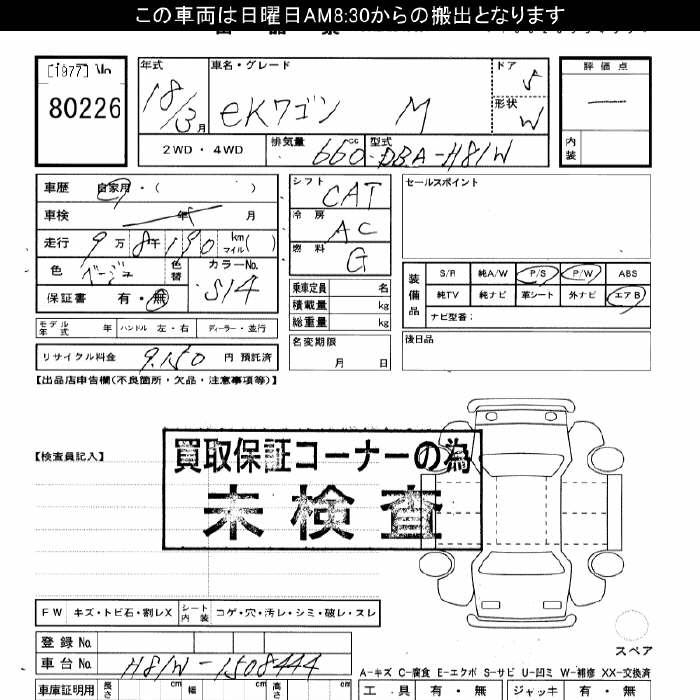 この車両は日曜日AM8:30からの搬出となります
[1977] No
80226
年式 18/3月
車名・グレード eKワゴン M
ドア 5
形状 W
2WD・4WD
排気量 660cc
型式 DBA-H81W
評価点 —
内装
車歴 自家用・( )
車検 年 月
走行 9万8千190 km マイル( )
色 ベージュ 色替 カラーNo. S14
保証書 有・無
シフト CAT
冷房 AC
燃料 G
乗車定員 名
積載量 kg
総重量 kg
名変期限 月 日
セールスポイント
装備品
S/R 純A/W P/S P/W ABS
純TV 純ナビ 革シート 外ナビ エアB
ナビ型番:
後日品
モデル年式 年 ハンドル 左・右 ディーラー・並行
リサイクル料金 9,150 円 預託済
【出品店申告欄(不良箇所・欠品・注意事項等)】
【検査員記入】
買取保証コーナーの為
未検査
FW キズ・トビ石・割レX シート内装 コゲ・穴・汚レ・シミ・破レ・スレ
登録No
車台No H81W-1508444
車庫証明用 長さ cm 幅 cm 高さ cm
スペア
A-キズ C-腐食 E-エクボ S-サビ U-凹ミ W-補修 XX-交換済
工具 有・無 ジャッキ 有・無